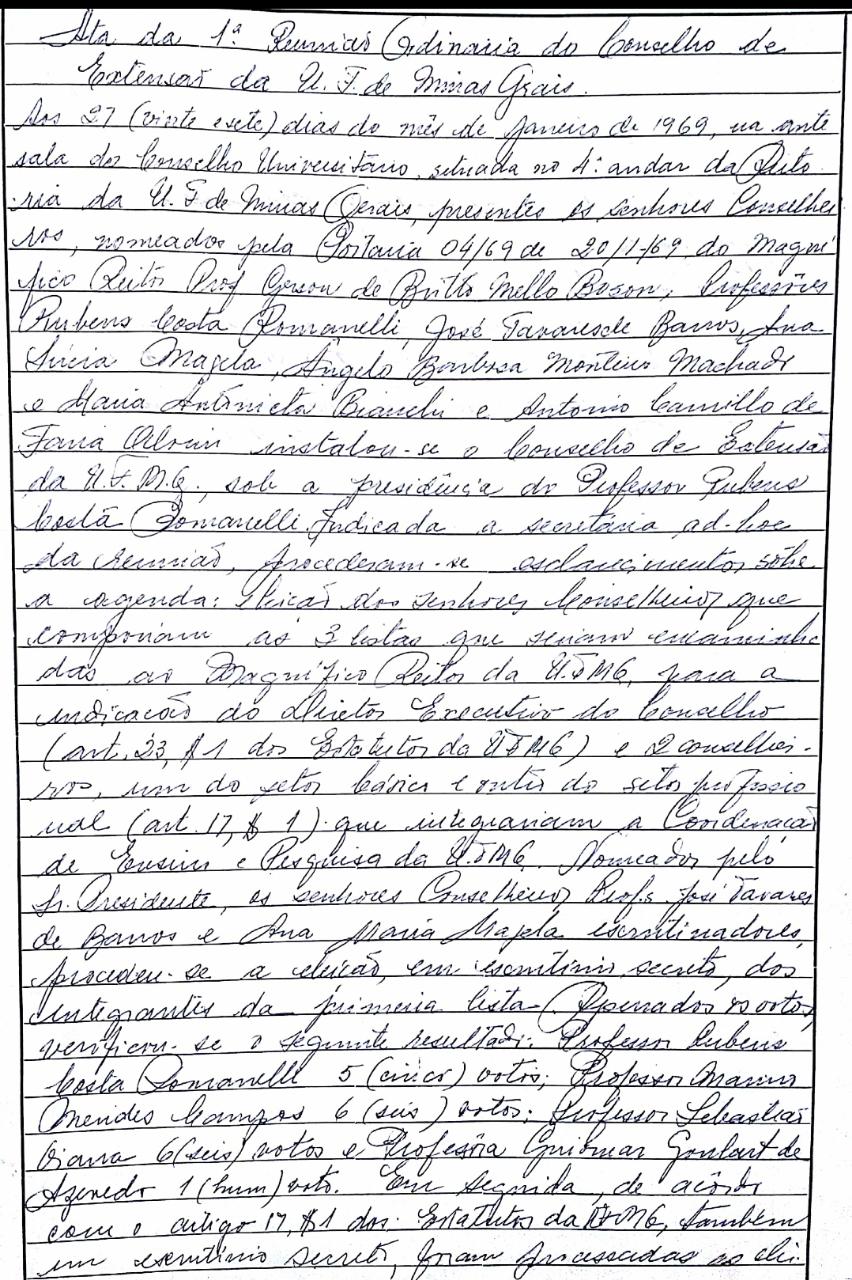 Ata da 1ª Reunião Ordinaria do Conselho de
Extensão da U. F. de Minas Gerais.
Aos 27 (vinte e sete) dias do mês de Janeiro de 1969, na ante
sala do Conselho Universitário, situada no 4º andar da Reito
ria da U. F. de Minas Gerais, presentes os senhores Conselhei
ros, nomeados pela Portaria 04/69 de 20/1/69 do Magní
fico Reitor Prof Gerson de Britto Mello Boson, Professôres
Rubens Costa Romanelli, José Tavares de Barros, Ana
Lúcia Magela, Ângelo Barbosa Monteiro Machado
e Maria Antonieta Bianchi e Antonio Camillo de
Faria Alvim instalou-se o Conselho de Extensão
da U.F.M.G., sob a presidência do Professor Rubens
Costa Romanelli. Indicada a secretária ad-hoc
da reunião, procederam-se esclarecimentos sôbre
a agenda: Eleição dos senhores Conselheiros que
comporiam as 3 listas que seriam encaminha
das ao Magnífico Reitor da UFMG, para a
indicação do Diretor Executivo do Conselho
(art. 23, § 1 dos Estatutos da UFMG) e 2 conselhei-
ros, um do setor básico e outro do setor profissio
nal (art. 17, § 1) que integrariam a Coordenação
de Ensino e Pesquisa da UFMG. Nomeados pelo
Sr. Presidente, os senhores Conselheiros Profs. José Tavares
de Barros e Ana Maria Majela escrutinadores,
procedeu-se a eleição, em escrutínio secreto, dos
integrantes da primeria lista. Apurados os votos,
verificou-se o seguinte resultado: Professor Rubens
Costa Romanelli 5 (cinco) votos; Professor Marcos
Mendes Campos 6 (seis) votos; Professor Sebastião
Viana 6 (seis) votos e Professôra Guiomar Goulart de
Azevedo 1 (hum) voto. Em seguida, de acôrdo
com o artigo 17, § 1 dos Estatutos da UFMG, também
em escrutínio secreto, foram processadas as elei-